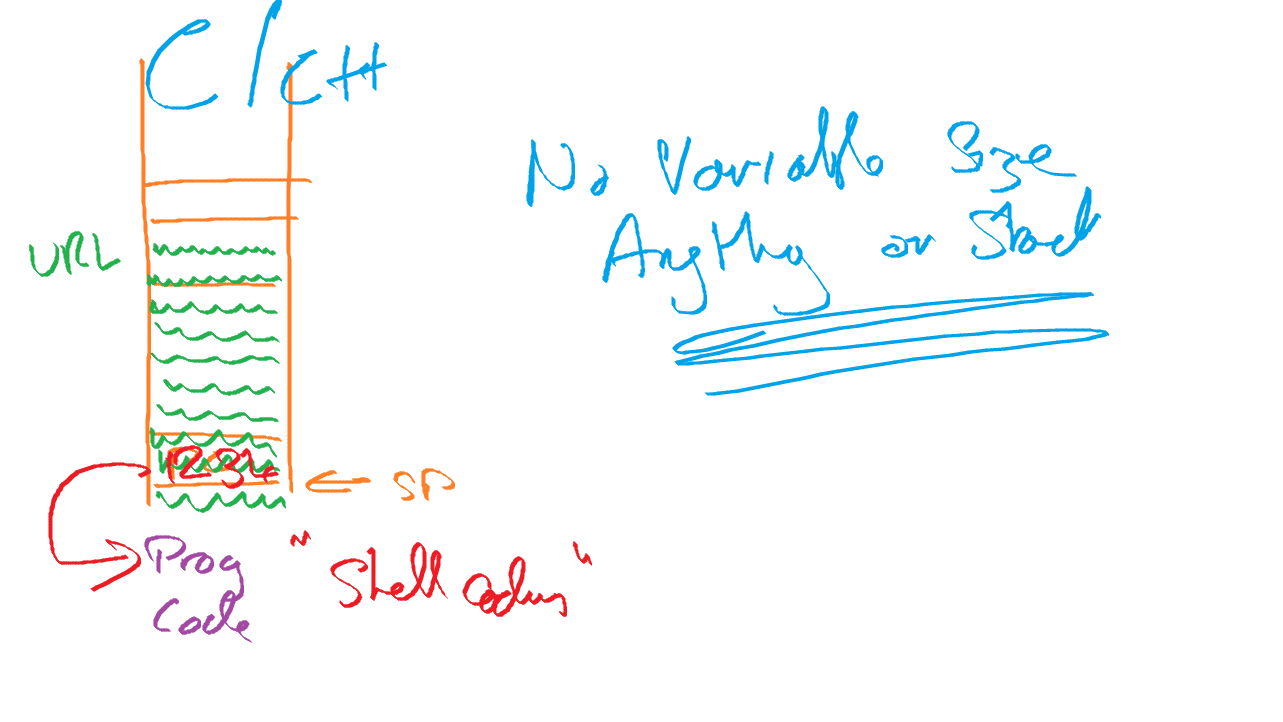 C/C++
No Variable Size
Anything on Stack
URL
1234
← SP
Prog
Code
"Shell coding"